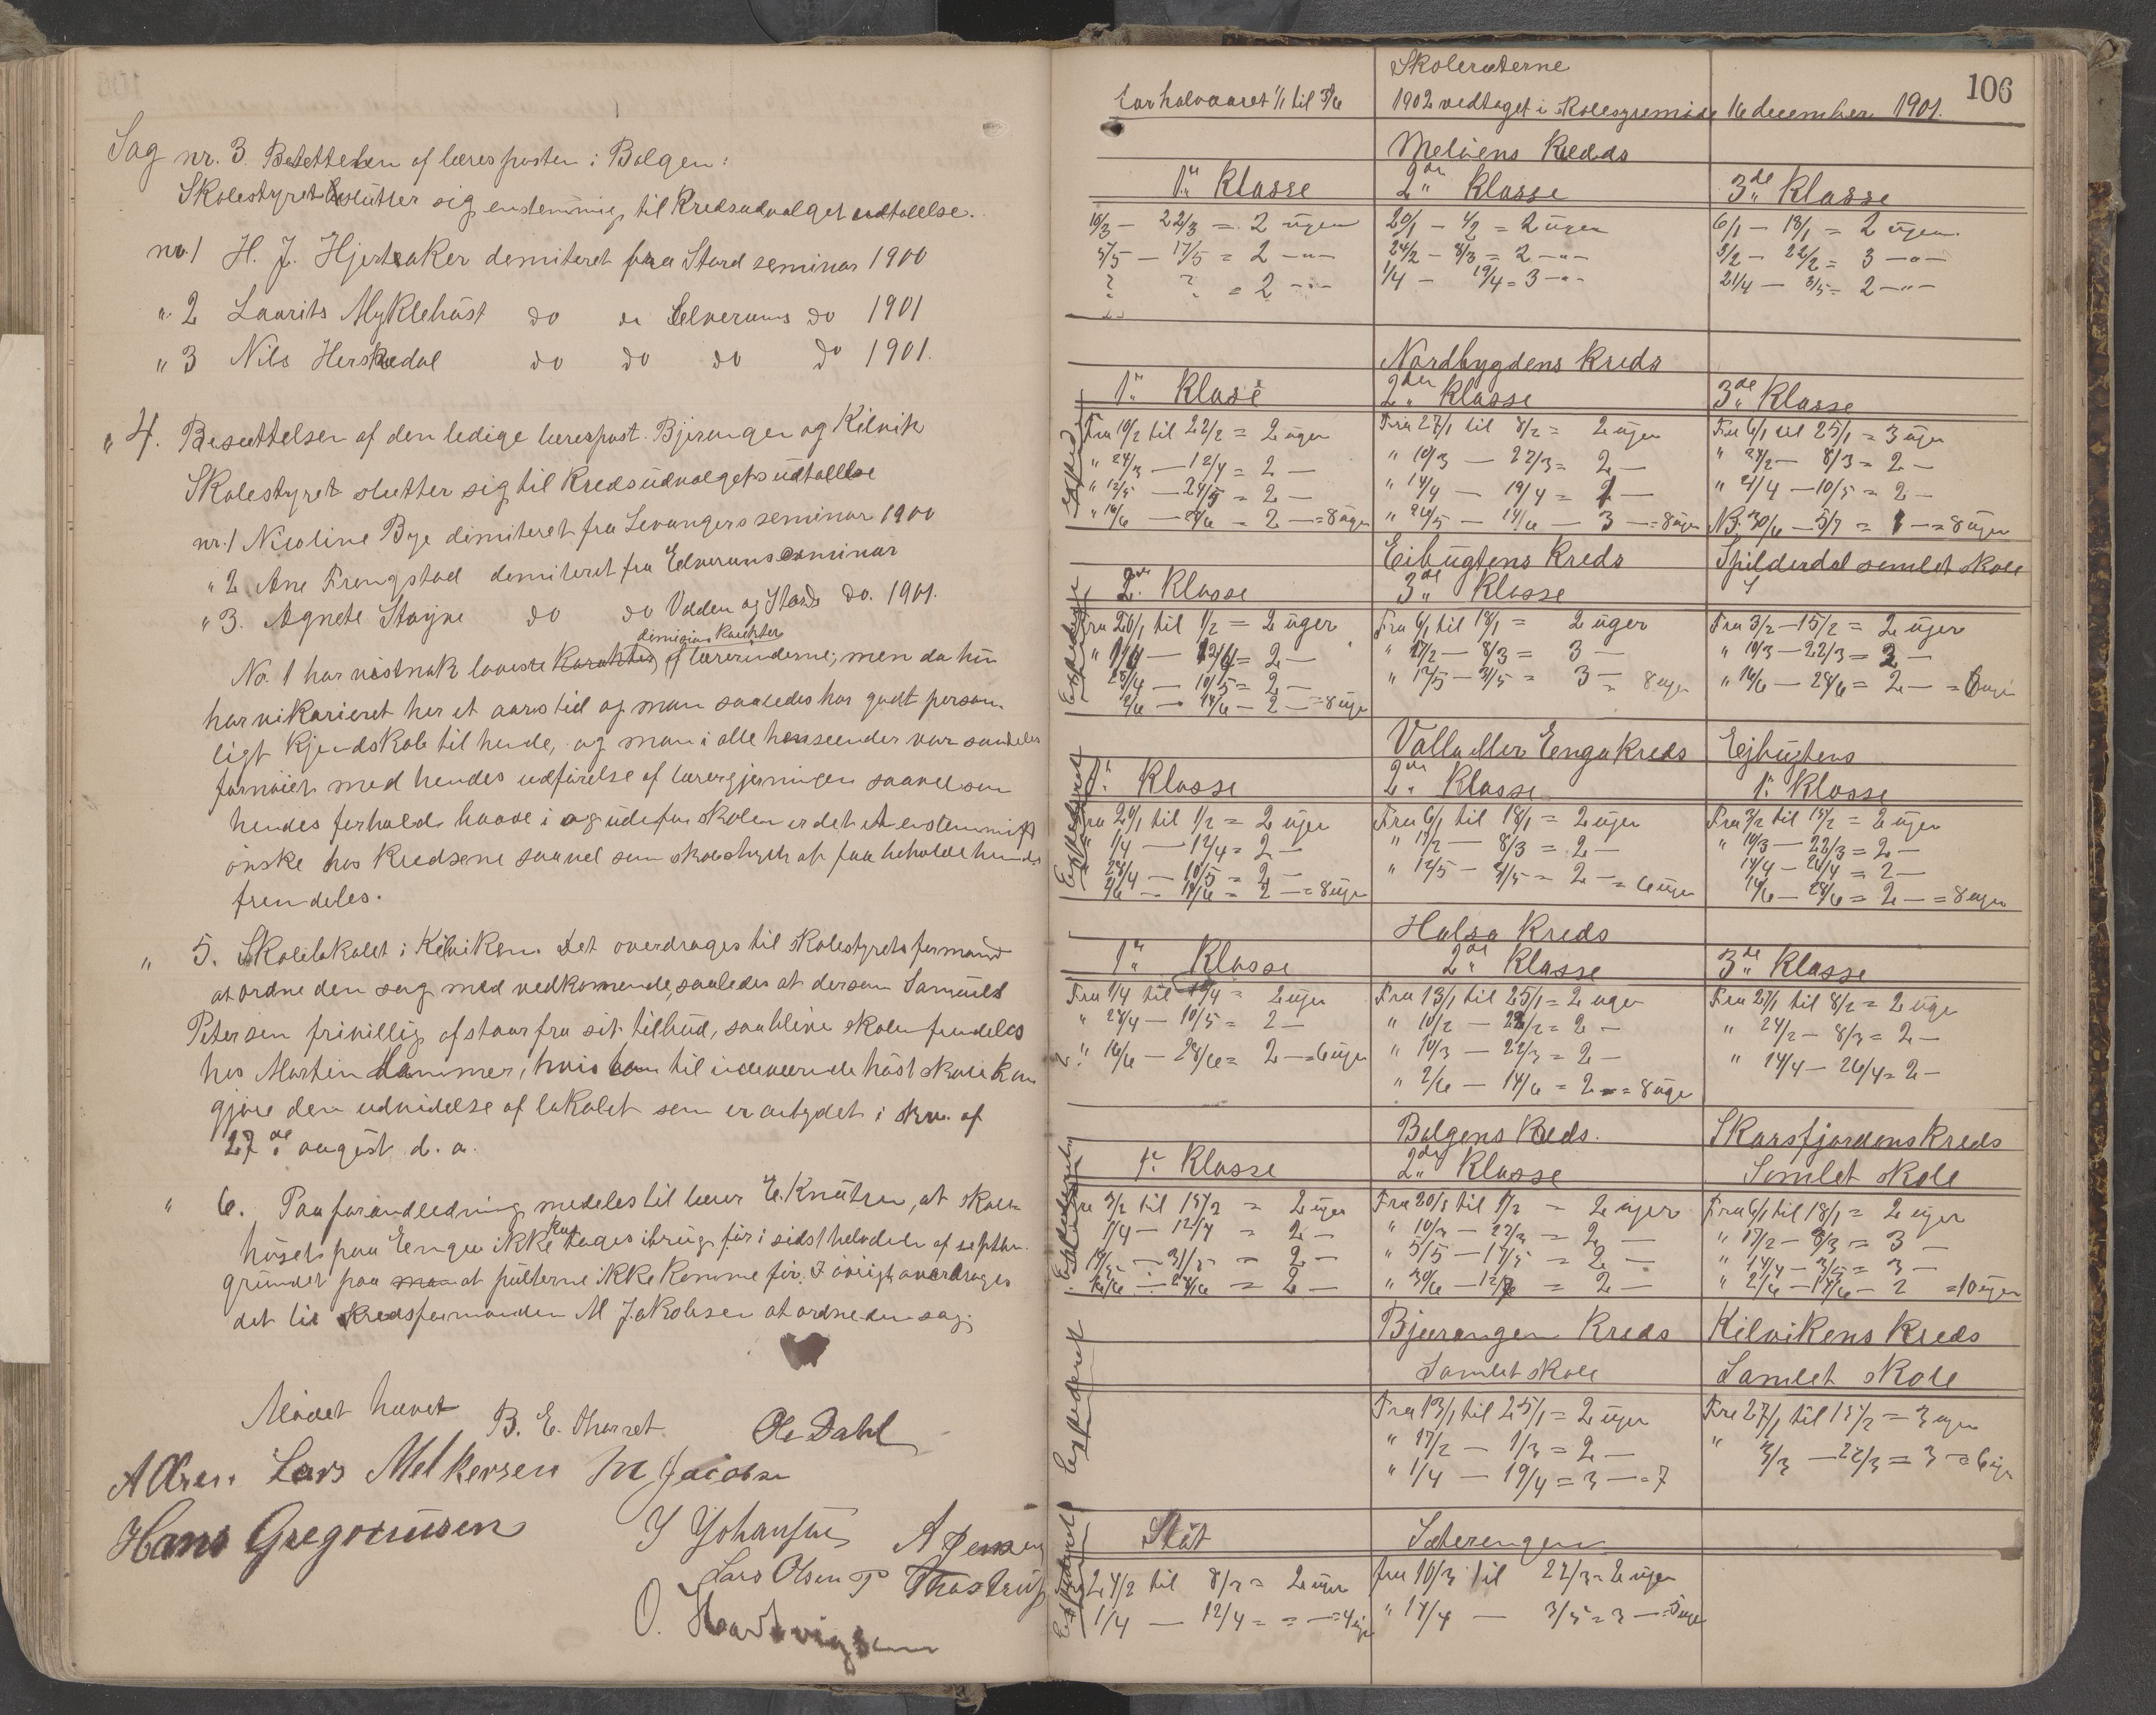 Sag nr. 3. Besettelsen af læreposten i Bolgen:
Skolestyret beslutter sig enstemmig til Kredsudvalget udtalelse.
no 1 H. J. Hjertaker demiteret fra Stord seminar 1900
" 2 Laurits Myklebúst do " Elverums do 1901
" 3 Nils Herskedal do do do do 1901.
" 4. Besættelsen af den ledige lærepost Bjerangen og Kilvik
Skolestyret slutter sig til Kredsúdvalgets údtalelse
nr. 1 Nicoline Bye dimiteret fra Levangers seminar 1900
" 2. Ane Frengstad demiteret fra Elverums seminar
" 3. Agnete Støyne do do Volden og Stords do. 1901.
dimisions Karakter
No. 1 har vistnok laveste Karakter af lærerinderne; men da hún
har vikarieret her et aars tid og man saaledes har godt person-
ligt Kjendskab til hende, og man i alle henseender var særdeles
fornöiet med hendes udförelse af lærergjerningen saavel som
hendes forhold baade i og údefor skolen er det et enstemmigt
önske hos Kredsene saavel som skolestyret at faa beholde hende
fremdeles.
" 5. Skolelokalet i Kilviken. Det overdrages til skolestyrets formand
at ordne den sag med vedkommende, saaledes at dersom Samúel
Petersen frivillig afstaar fra sit tilbúd, saa blive skolen fremdeles
hos Martin Hammer, hvis han til indeværende höst skole kan
gjöre den udvidelse af lokalet som er antydet i skr. af
27de aúgúst d. a.
" 6. Paa foranledning medeles til lærer E. Knútsen, at skole-
húset paa Engen ikke kan tages i brúg för i sidst halvdelen af septbr.
grúndet paa man at púlterne ikke komme för. I övrigt overdrages
det til Kredsformanden M Jakobsen at ordne den sag.
Mödet hævet
B. E. Thorset Ole Dahl
A Olsen. Lars Melkersen M Jacobsen
Hans Gregoriúsen J Johansen A Jensen
Lars Olsen P Thostrup
O. Hartvigsen
106
Skoleruterne
for halvaaret 1/1 til 30/6 1902 vedtaget i skolestyremöde 16 december 1901.
Melöens Kreds
1ste Klasse 2den Klasse 3de Klasse
10/3 – 22/3 = 2 úger 20/1 – 1/2 = 2 úger 6/1 – 18/1 = 2 úger.
5/5 – 17/5 = 2 –"– 24/2 – 8/3 = 2 –"– 3/2 – 22/2 = 3 –"–
? ? = 2 –"– 1/4 – 19/4 = 3 –"– 21/4 – 3/5 = 2 –"–
Nordbygdens Kreds
1ste Klase 2den Klasse 3de Klasse
Fra 10/2 til 22/2 = 2 úger Fra 27/1 til 8/2 = 2 úger Fra 6/1 til 25/1 = 3 úger
" 24/3 – 12/4 = 2 – " 10/3 – 22/3 = 2 – " 24/2 – 8/3 = 2 –
" 12/5 – 24/5 = 2 – " 14/4 – 19/4 = 1 – " 21/4 – 10/5 = 2 –
" 16/6 – 28/6 – 2 – = 8 úger " 26/5 – 14/6 – 3 – = 8 úger N.B. 30/6 – 5/7 = 1 – = 8 úger
Eibúgtens Kreds Spilderdal samlet skole
2den Klasse 3de Klasse
Fra 20/1 til 1/2 = 2 úger Fra 6/1 til 18/1 = 2 úger Fra 3/2 – 15/2 = 2 úger
" 1/4 – 12/4 = 2 – " 17/2 – 8/3 = 3 – " 10/3 – 22/3 = 2 –
28/4 – 10/5 = 2 – " 12/5 – 31/5 = 3 – = 8 úger " 16/6 – 28/6 = 2 – = 6 úger
2/6 – 14/6 – 2 – = 8 úger
Valla eller Enga Kreds Ejbúgtens
1ste Klasse 2den Klasse 1ste Klasse
Fra 20/1 til 1/2 = 2 úger Fra 6/1 til 18/1 = 2 úger Fra 3/2 til 15/2 = 2 úger
" 1/4 – 12/4 = 2 – " 17/2 – 8/3 = 2 – " 10/3 – 22/3 = 2 –
28/4 – 10/5 = 2 – " 12/5 – 31/5 = 2 – = 6 úger 14/4 – 26/4 = 2 –
2/6 – 14/6 = 2 – = 8 úger 16/6 – 28/6 = 2 – = 8 úger
Halsa Kreds
1ste Klasse 2de Klasse 3de Klasse
Fra 1/4 til 12/4 = 2 úger Fra 13/1 til 25/1 = 2 úger Fra 27/1 til 8/2 = 2 úge
" 28/4 – 10/5 = 2 – " 10/2 – 22/2 = 2 – " 24/2 – 8/3 = 2 –
? " 16/6 – 28/6 = 2 – = 6 úger " 10/3 – 22/3 = 2 – " 14/4 – 26/4 = 2 –
" 2/6 – 14/6 = 2 – = 8 úge
Bolgens Kreds. Skarsfjordens Kreds
1ste Klasse 2den Klasse Samlet skole
Fra 3/2 til 15/2 = 2 úger Fra 20/1 til 1/2 = 2 úger Fra 6/1 til 18/1 = 2 úger
1/4 – 12/4 = 2 – " 10/3 – 22/3 = 2 – " 17/2 – 8/3 = 3 –
19/5 – 31/5 = 2 – " 5/5 – 17/5 = 2 – " 14/4 – 3/5 = 3 –
16/6 – 28/6 = 2 – " 30/6 – 12/7 = 2 – " 2/6 – 14/6 – 2 = 10 úger
Bjærangen Kreds Kilvikens Kreds
Samlet skole Samlet skole
Fra 13/1 til 25/1 = 2 úger Fra 27/1 til 15/2 = 3 úger
" 17/2 – 1/3 = 2 – " 3/3 – 22/3 = 3 = 6 úger
" 1/4 – 19/4 = 3 – = 7
Støt Sæterengen
24/2 til 8/3 = 2 úger fra 10/3 til 22/3 = 2 úger
1/4 – 12/4 = = – = 4 úger " 14/4 – 3/5 = 3 – = 5 úger
Expederet